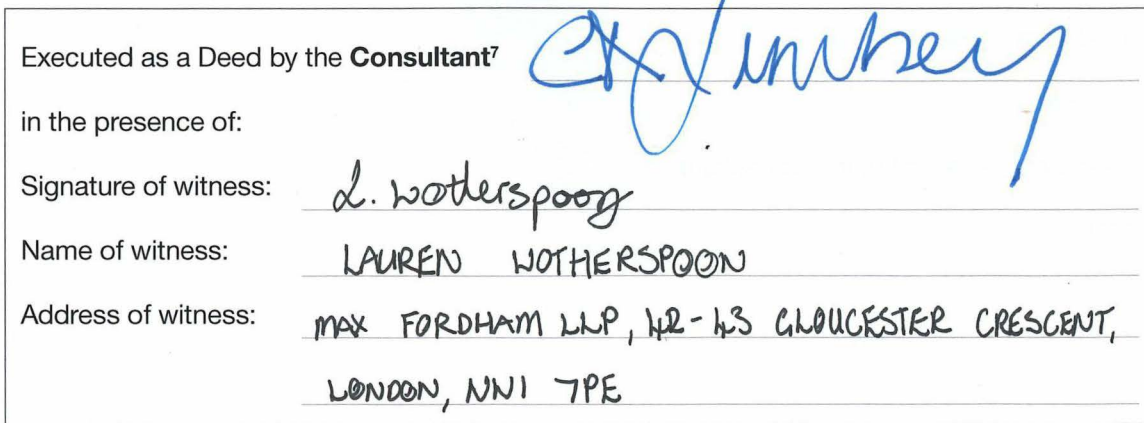 Executed as a Deed by the Consultant⁷
in the presence of:
Signature of witness: L. Wotherspoon
Name of witness: LAUREN WOTHERSPOON
Address of witness: MAX FORDHAM LLP, 42-43 GLOUCESTER CRESCENT,
LONDON, NW1 7PE